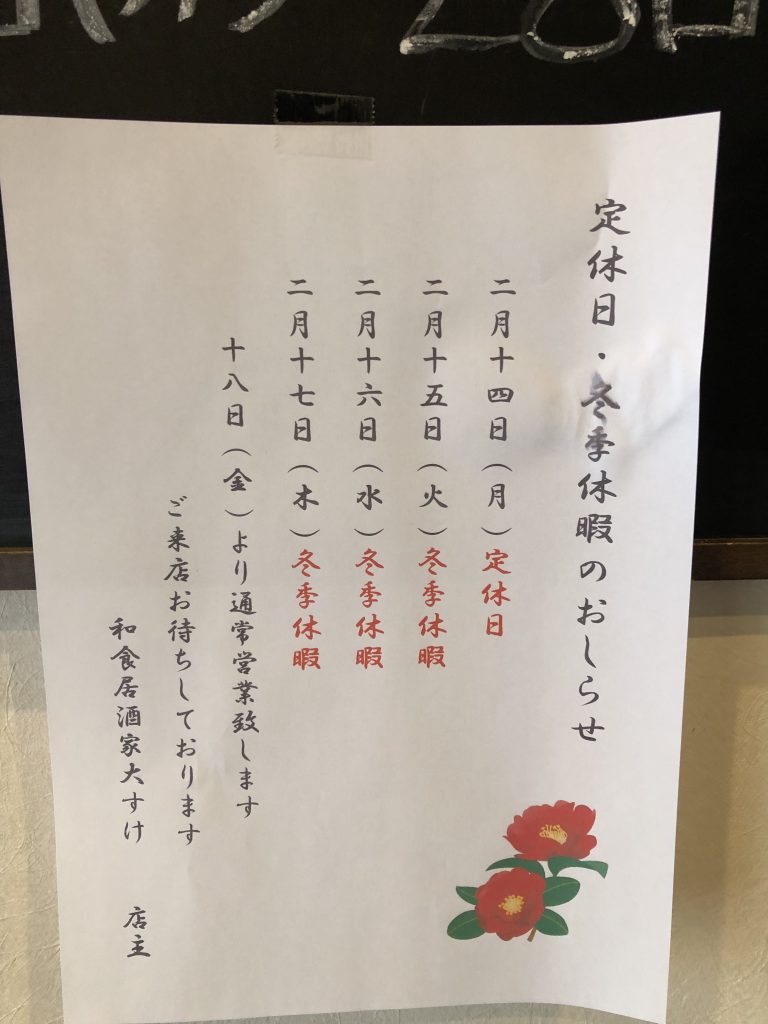 定休日・冬季休暇のおしらせ
二月十四日（月）定休日
二月十五日（火）冬季休暇
二月十六日（水）冬季休暇
二月十七日（木）冬季休暇
十八日（金）より通常営業致します
ご来店お待ちしております
和食居酒家大すけ　店主